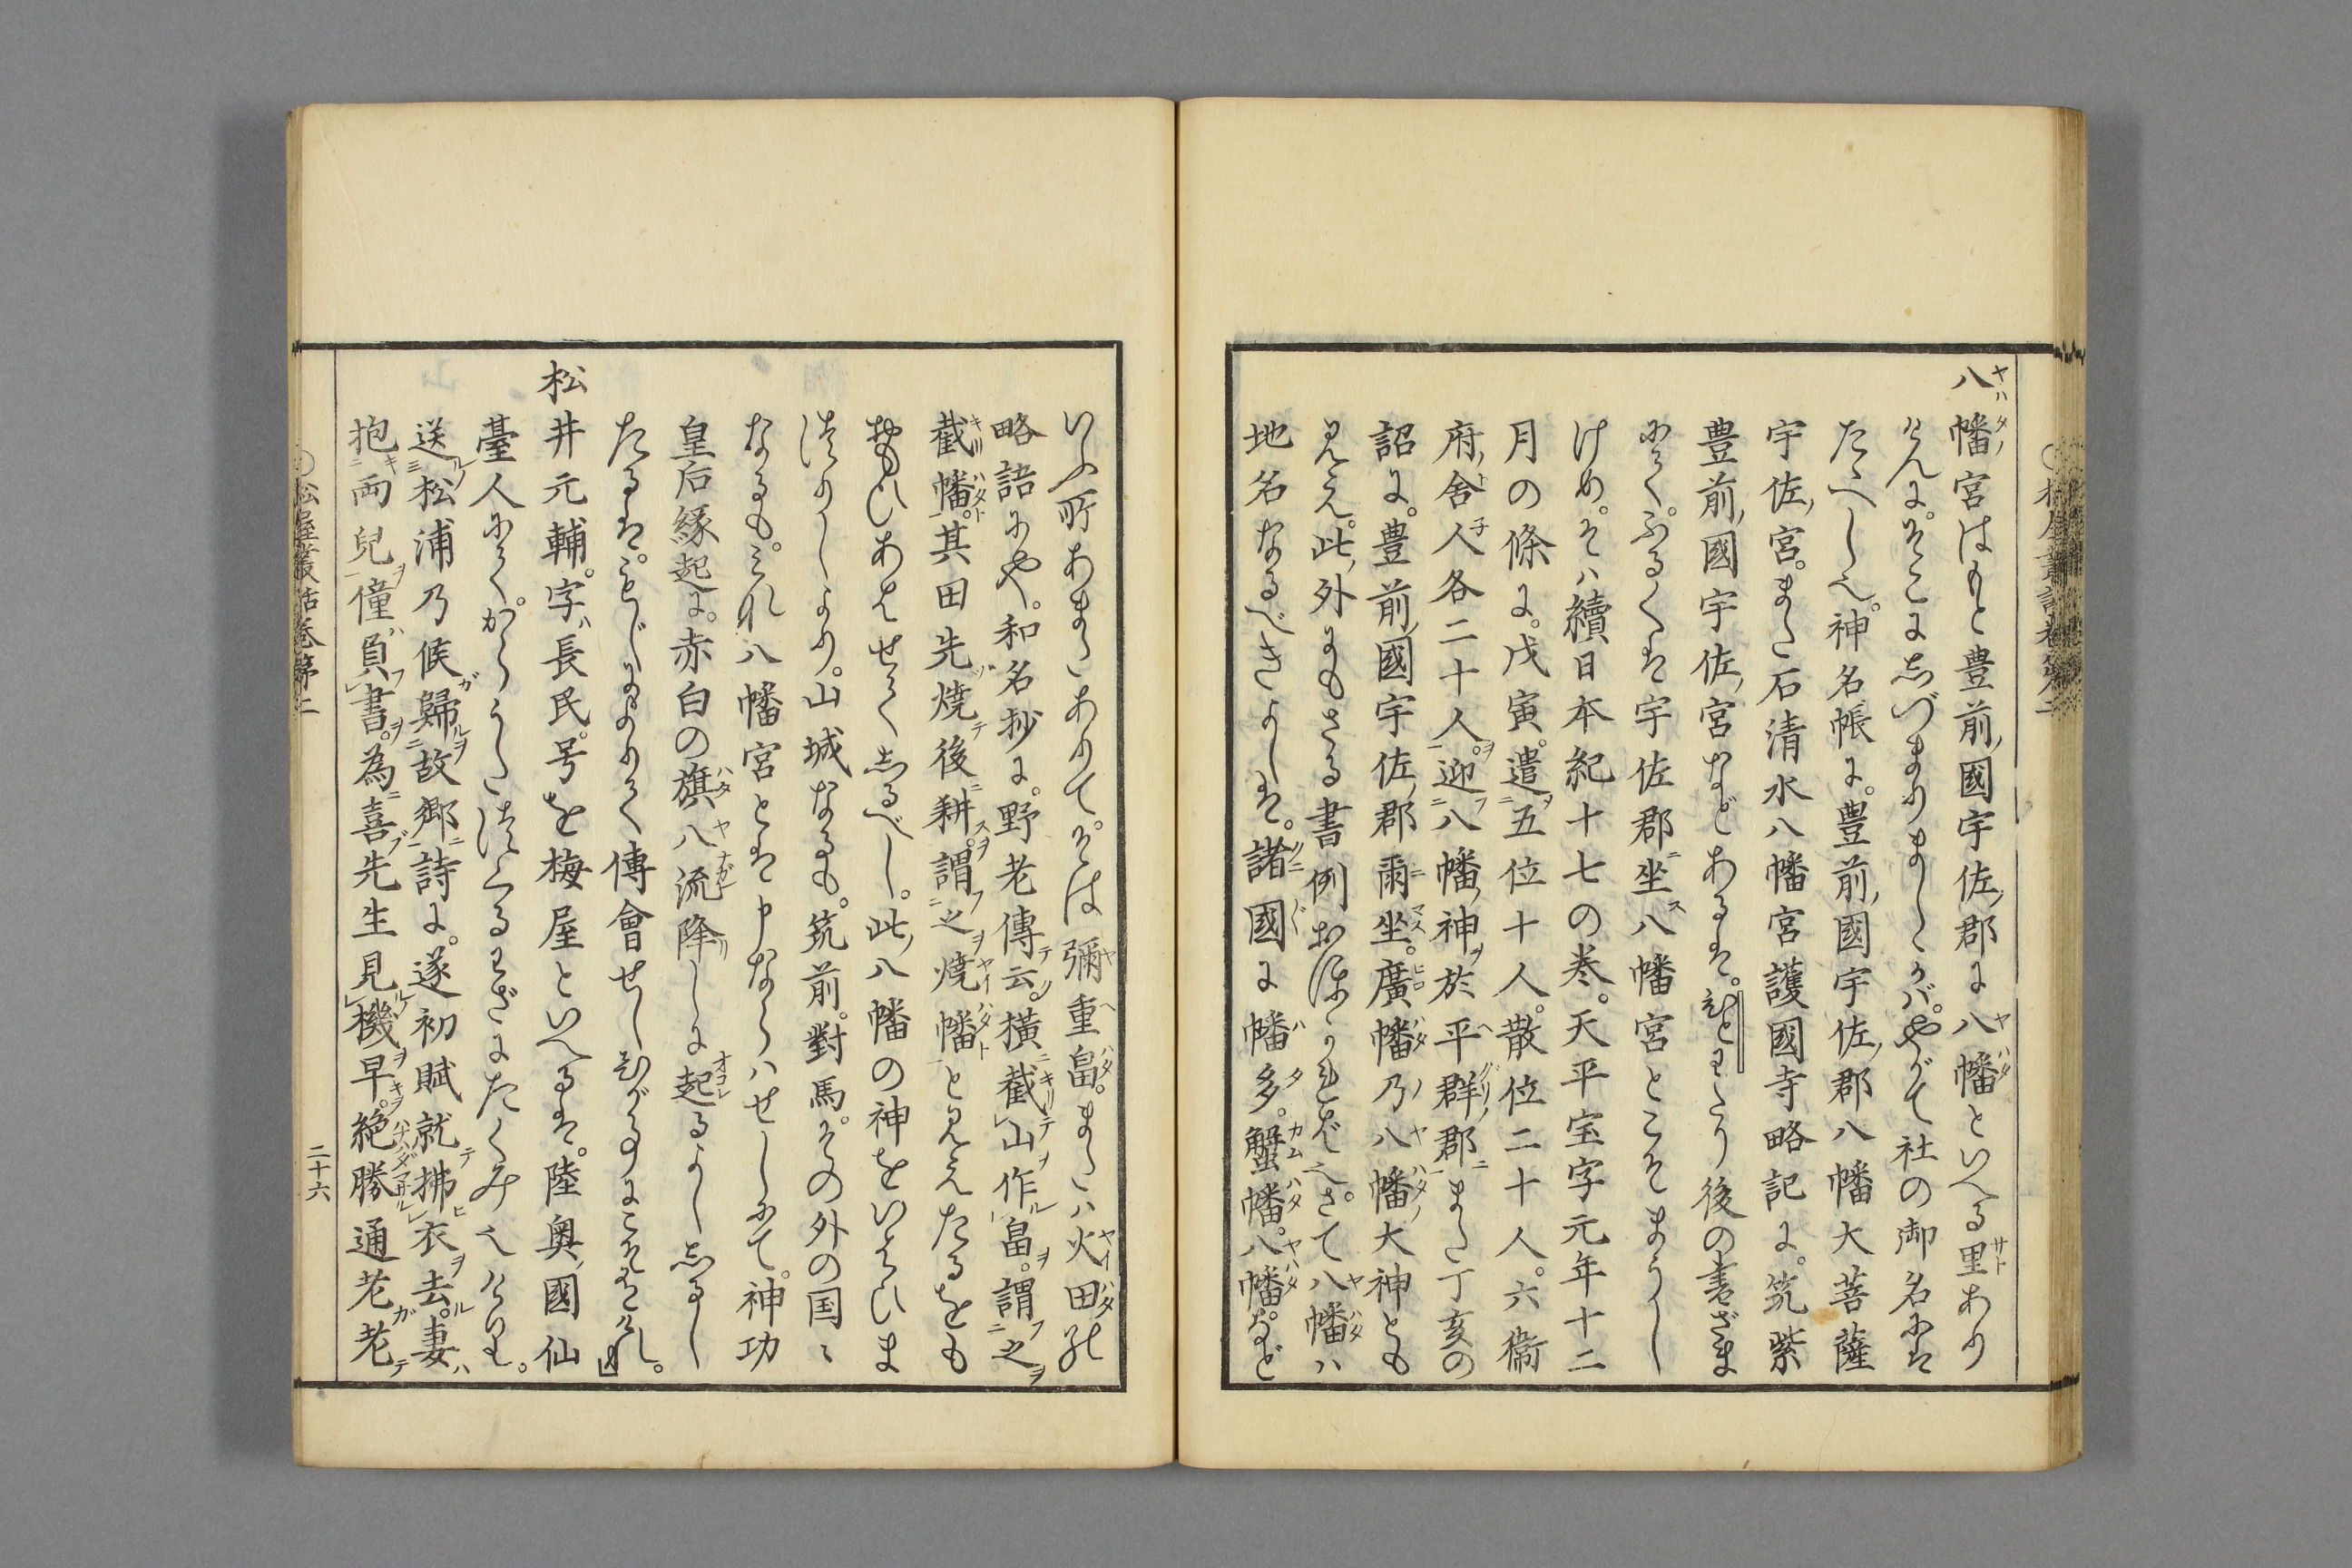 八幡宮はもと豊前ノ國宇佐ノ郡に八幡といへる里あり
けんに。そこにしづまりましゝかバ。やがて社の御名にも
たゝへし也。神名帳に。豊前ノ國宇佐ノ郡八幡大菩薩
宇佐ノ宮。また石清水八幡宮護國寺略記に。筑紫
豊前ノ國宇佐ノ宮などあるは。ひとわたり後の書ざま
にて。ふるくは宇佐郡ニ坐ス八幡宮とこそまうし
けめ。そハ續日本紀十七の巻。天平宝字元年十二
月の條に。戊寅。遣五位十人。散位二十人。六衞
府ノ舎人各二十人。迎八幡ノ神於平群ノ郡また丁亥の
詔に。豊前ノ國宇佐ノ郡爾坐。廣幡乃八幡大神とも
見え。此ノ外にもさる書例おほかれば也。さて八幡ハ
地名なるべきよしは。諸國に幡多。蟹幡。八幡など
いふ所あまたありて。そは彌重畠。またハ火田の
略語にや。和名抄に。野老傳云。横截山作畠。謂之
截幡。其田先燒後耕。謂之燒幡と見えたるをも
おもひあはせてしるべし。此ノ八幡の神をいはひま
つりしより。山城なるも。筑前。對馬。その外の国ゝ
なるも。みな八幡宮とは申ならハせしにて。神功
皇后縁起に。赤白の旗八流降りしに起るよししるし
たるは。もじによりて傳會せしひがことにこそありけれ。
松井元輔。字ハ長民。号を梅屋といへるは。陸奥ノ國仙
臺人にて。からうたつくるわざにたくみ也けり。
送松浦乃侯歸故郷詩に。遂初賦就拂衣去。妻ハ
抱両兒僮ハ負書。為喜先生見機早。絶勝通老老
○松屋叢話巻第二
二十六